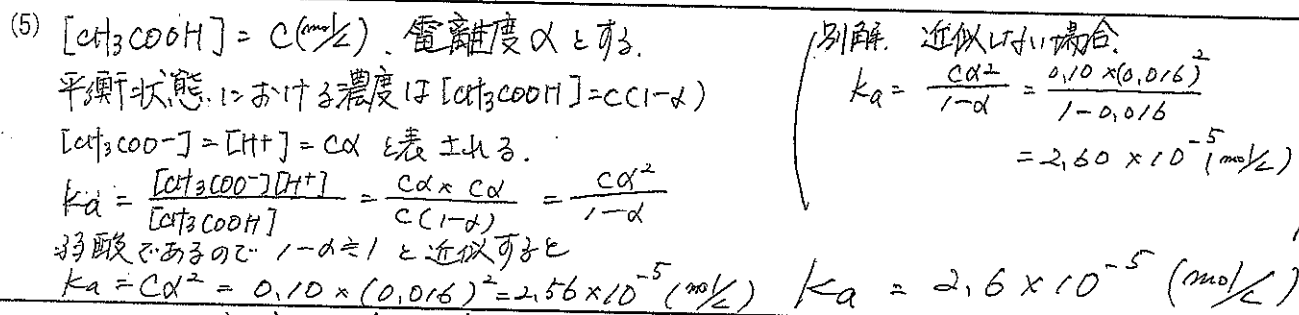 (5) [CH3COOH] = C(mol/L)、電離度 α とする.
平衡状態における濃度は [CH3COOH]=C(1-α)
[CH3COO-]=[H+]=Cα と表される.
Ka = [CH3COO-][H+] / [CH3COOH] = Cα × Cα / C(1-α) = Cα² / 1-α
弱酸であるので 1-α≒1 と近似すると
Ka = Cα² = 0.10 × (0.016)² = 2.56 × 10⁻⁵ (mol/L)
別解. 近似しない場合.
Ka = Cα² / 1-α = 0.10 × (0.016)² / 1-0.016
= 2.60 × 10⁻⁵ (mol/L)
Ka = 2.6 × 10⁻⁵ (mol/L)